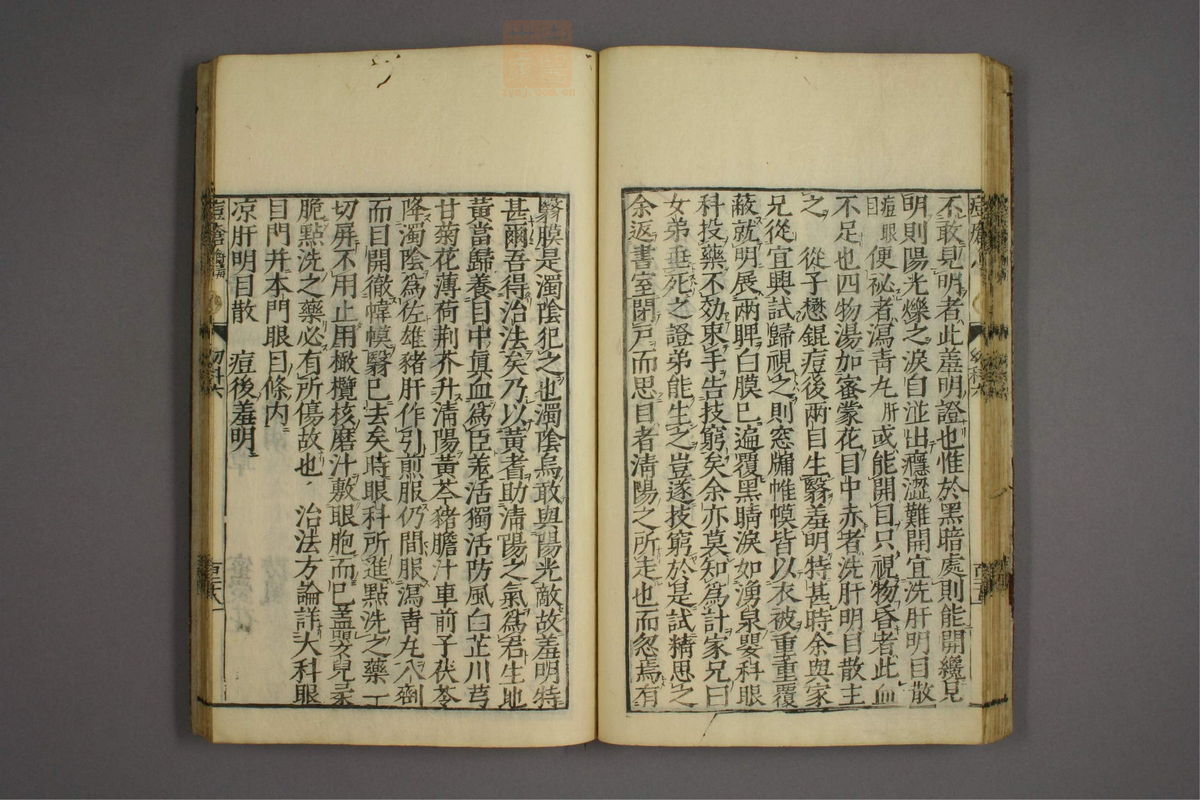 不敢見明者此羞明證也惟於黑暗處則能開纔見
明則陽光爍之淚自泣出癮澀難開宜洗肝明目散
痘眼目便祕者瀉青丸肝或能開目只視物昏者此血
不足也四物湯加蜜蒙花目中赤者洗肝明目散主
之 從子懋錕痘後兩目生翳羞明特甚時余與家
兄從宜興試歸視之則窓牖帷幙皆以衣被重重覆
蔽就明展兩睥白膜已遍覆黑睛淚如湧泉嬰科眼
科投藥不効束手告技窮矣余亦莫知為計家兄曰
女弟垂死之證弟能生之豈遂技窮於是試精思之
余返書室閉戶而思目者清陽之所走也而忽焉有
翳膜是濁陰犯之也濁陰烏敢與陽光敵故羞明特
甚爾吾得治法矣乃以黃耆助清陽之氣為君生地
黃當歸養目中眞血為臣羌活獨活防風白芷川芎
甘菊花薄荷荊芥升清陽黃芩豬膽汁車前子茯苓
降濁陰為佐雄豬肝作引煎服仍間服瀉青丸八劑
而目開徹幃幙翳已去矣時眼科所進點洗之藥一
切屏不用止用橄欖核磨汁敷眼胞而已蓋嬰兒柔
脆點洗之藥必有所傷故也 治法方論詳大科眼
目門并本門眼目條內
凉肝明目散 痘後羞明